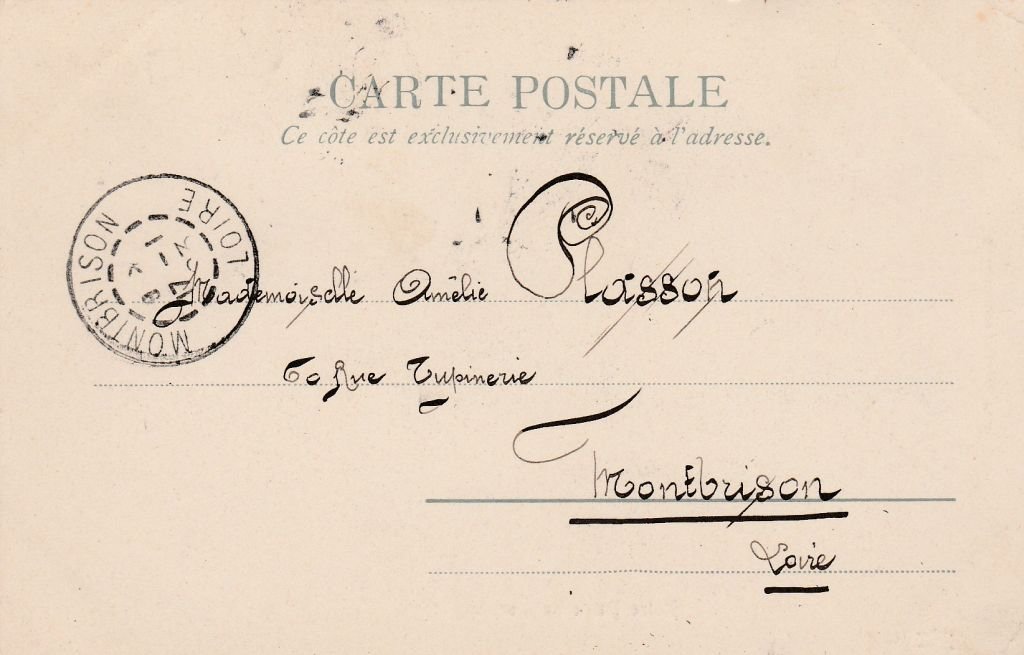 CARTE POSTALE
Ce côte est exclusivement réservé à l'adresse.
MONTBRISON
LOIRE
Mademoiselle Amélie Plasson
60 Rue Tupinerie
Montbrison
Loire